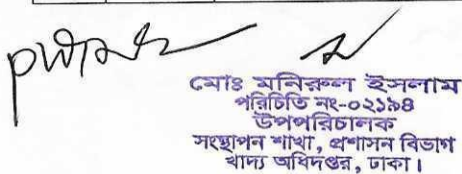 মোঃ মনিরুল ইসলাম
পরিচিতি নং-০২১৯৪
উপপরিচালক
সংস্থাপন শাখা, প্রশাসন বিভাগ
খাদ্য অধিদপ্তর, ঢাকা।